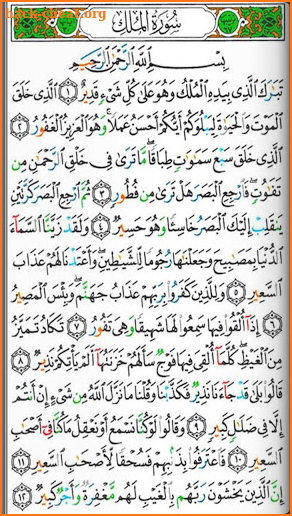 سُورَةُ الْمُلْكِ
بِسْمِ اللَّهِ الرَّحْمَٰنِ الرَّحِيمِ
تَبَارَكَ الَّذِي بِيَدِهِ الْمُلْكُ وَهُوَ عَلَىٰ كُلِّ شَيْءٍ قَدِيرٌ ﴿١﴾ الَّذِي خَلَقَ
الْمَوْتَ وَالْحَيَاةَ لِيَبْلُوَكُمْ أَيُّكُمْ أَحْسَنُ عَمَلًا ۚ وَهُوَ الْعَزِيزُ الْغَفُورُ ﴿٢﴾
الَّذِي خَلَقَ سَبْعَ سَمَٰوَٰتٍ طِبَاقًا ۖ مَّا تَرَىٰ فِي خَلْقِ الرَّحْمَٰنِ مِن
تَفَٰوُتٍ ۖ فَارْجِعِ الْبَصَرَ هَلْ تَرَىٰ مِن فُطُورٍ ﴿٣﴾ ثُمَّ ارْجِعِ الْبَصَرَ كَرَّتَيْنِ
يَنقَلِبْ إِلَيْكَ الْبَصَرُ خَاسِئًا وَهُوَ حَسِيرٌ ﴿٤﴾ وَلَقَدْ زَيَّنَّا السَّمَاءَ
الدُّنْيَا بِمَصَٰبِيحَ وَجَعَلْنَٰهَا رُجُومًا لِّلشَّيَٰطِينِ ۖ وَأَعْتَدْنَا لَهُمْ عَذَابَ
السَّعِيرِ ﴿٥﴾ وَلِلَّذِينَ كَفَرُوا بِرَبِّهِمْ عَذَابُ جَهَنَّمَ ۖ وَبِئْسَ الْمَصِيرُ
﴿٦﴾ إِذَا أُلْقُوا فِيهَا سَمِعُوا لَهَا شَهِيقًا وَهِيَ تَفُورُ ﴿٧﴾ تَكَادُ تَمَيَّزُ
مِنَ الْغَيْظِ ۖ كُلَّمَا أُلْقِيَ فِيهَا فَوْجٌ سَأَلَهُمْ خَزَنَتُهَا أَلَمْ يَأْتِكُمْ نَذِيرٌ ﴿٨﴾
قَالُوا بَلَىٰ قَدْ جَاءَنَا نَذِيرٌ فَكَذَّبْنَا وَقُلْنَا مَا نَزَّلَ اللَّهُ مِن شَيْءٍ إِنْ أَنتُمْ
إِلَّا فِي ضَلَٰلٍ كَبِيرٍ ﴿٩﴾ وَقَالُوا لَوْ كُنَّا نَسْمَعُ أَوْ نَعْقِلُ مَا كُنَّا فِي أَصْحَٰبِ
السَّعِيرِ ﴿١٠﴾ فَاعْتَرَفُوا بِذَنبِهِمْ فَسُحْقًا لِّأَصْحَٰبِ السَّعِيرِ ﴿١١﴾
إِنَّ الَّذِينَ يَخْشَوْنَ رَبَّهُم بِالْغَيْبِ لَهُم مَّغْفِرَةٌ وَأَجْرٌ كَبِيرٌ ﴿١٢﴾